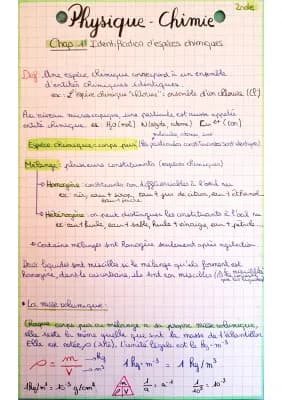 2nde
Physique - Chimie
Chap 1: Identification d'espèces chimiques
Def: Une espèce chimique correspond à un ensemble
d'entités chimiques identiques.
ex: L'espèce chimique "chlorure": ensemble d'ion chlorure (Cl⁻)
Au niveau microscopique, une particule est aussi appelée
entité chimique ex: H₂O (mol) N (atome) Cu²⁺ (ion)
molécules, atomes, ions
Espèce chimique: corps pur (les particules constituantes sont identiques)
Mélange: plusieurs constituants (espèces chimiques)
Homogène: constituants non différenciables à l'oeil nu
ex: air, eau + sirop, eau + jus de citron, eau + éthanol
eau + sucre
Hétérogène: on peut distinguer les constituants à l'oeil nu
ex: eau + huile, eau + sable, huile + vinaigre, eau + pétrole...
Certains mélanges sont homogène seulement après agitation.
Deux liquides sont miscibles si le mélange qu'ils forment est
homogène, dans le cas contraire, ils sont non miscibles
• La masse volumique:
Chaque corps pur ou mélange a sa propre masse volumique,
elle reste la même quelle que soit la masse de l'échantillon
Elle est notée ρ (rhô). L'unité légale est le kg·m⁻³
ρ = m/V →kg →m³ 1 kg·m⁻³ = 1 kg/m³
1 kg/m³ = 10⁻³ g/cm³ m ρ V 1/a = a⁻¹ 1/10³ = 10⁻³